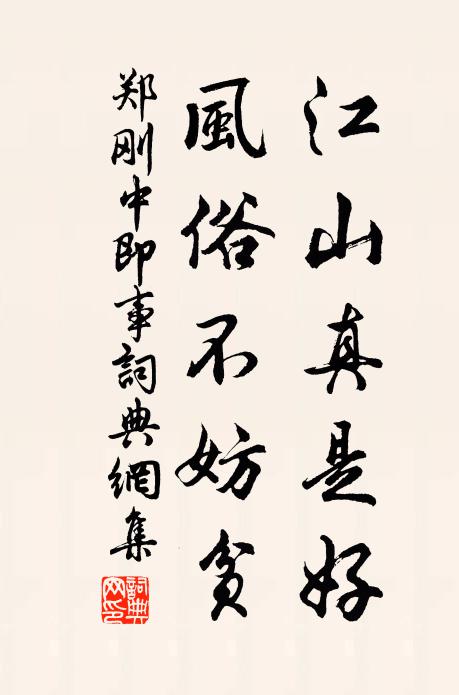 江山真是好
風俗不妨貧
郑刚中即事詞典網集
詞典网印